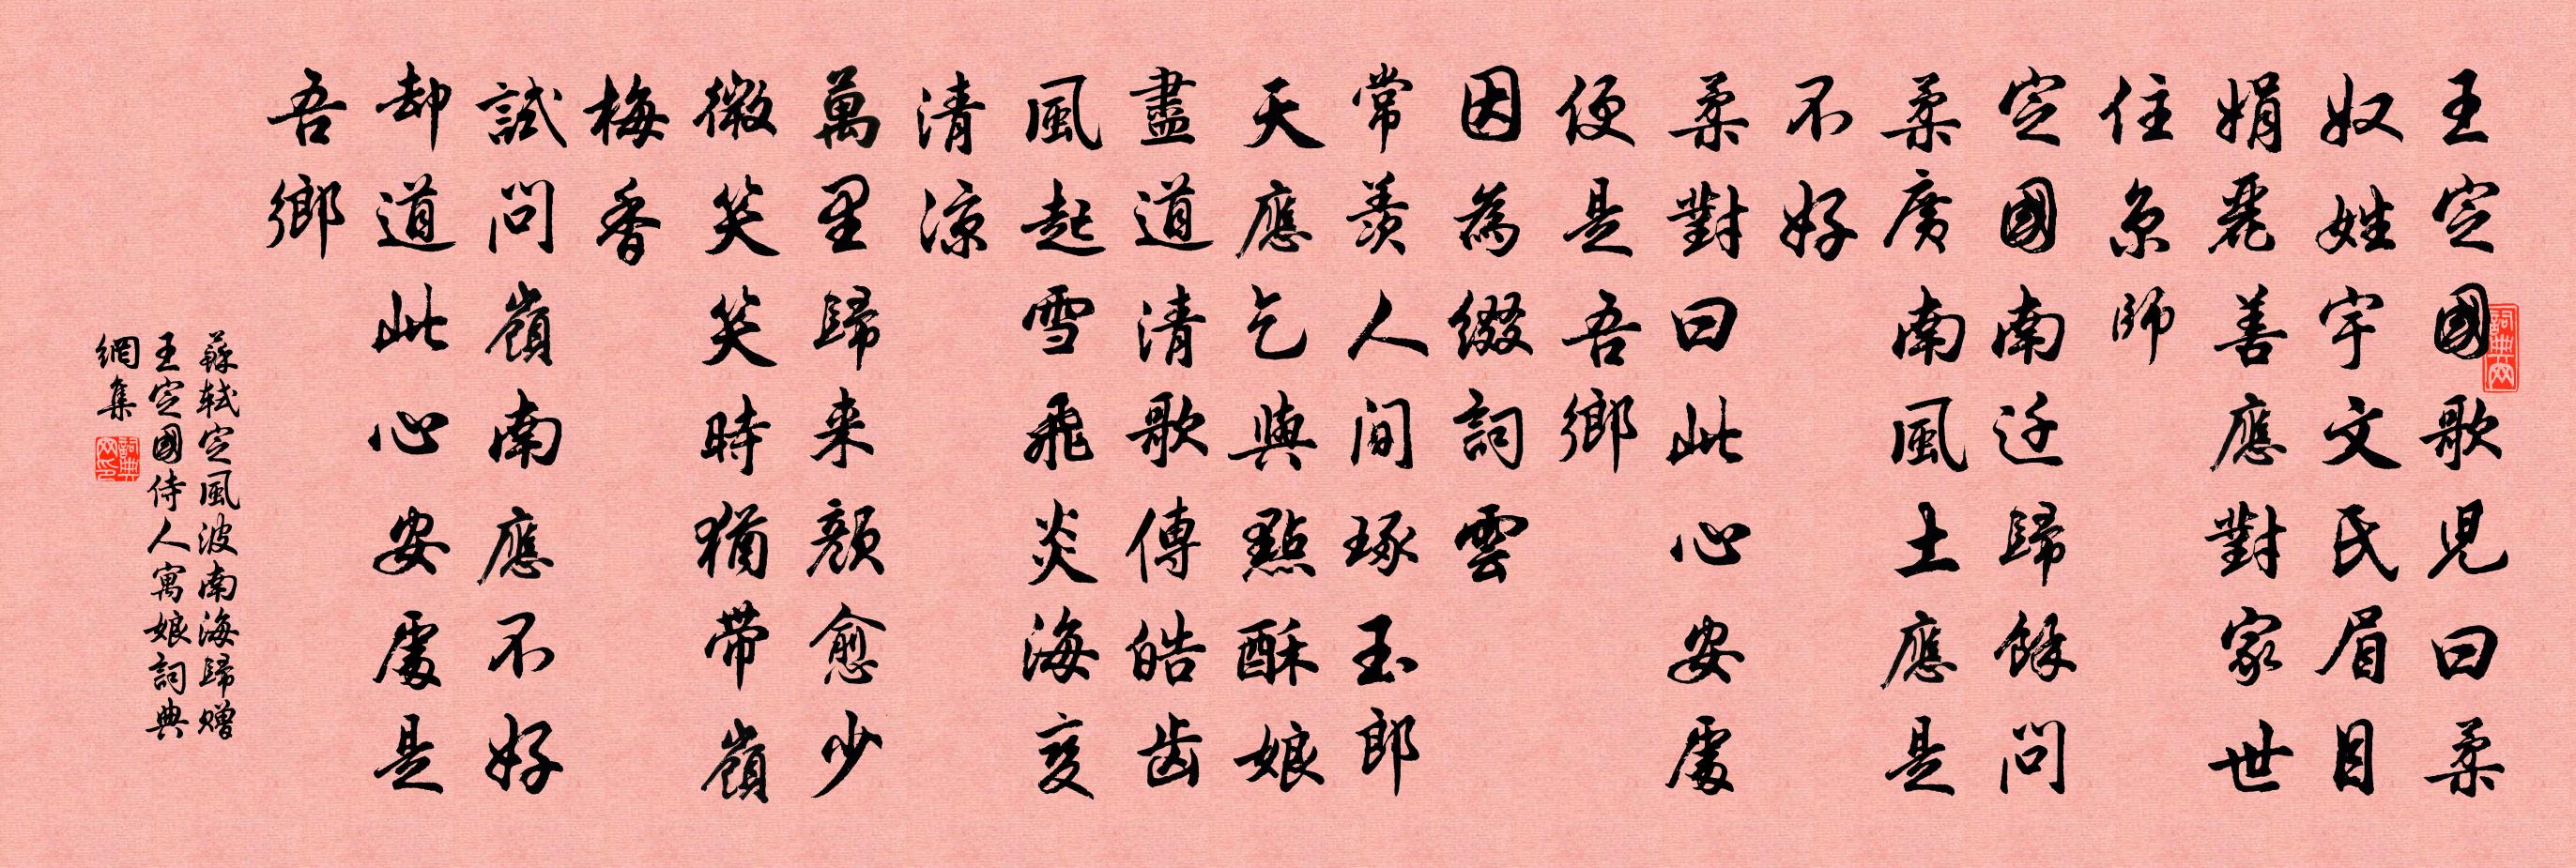 王定國歌兒曰柔
奴姓宇文氏眉目
娟麗善應對家世
住京師
定國南迁歸餘問
柔廣南風土應是
不好
柔對曰此心安處
便是吾鄉
因為綴詞雲
常羨人間琢玉郎
天應乞與點酥娘
盡道清歌傳皓齿
風起雪飛炎海變
清涼
萬里歸来顏愈少
微笑笑時猶帶嶺
梅香
試問嶺南應不好
却道此心安處是
吾鄉
蘇軾定風波南海歸贈
王定國侍人寓娘詞典
網集
詞典网
詞典网印